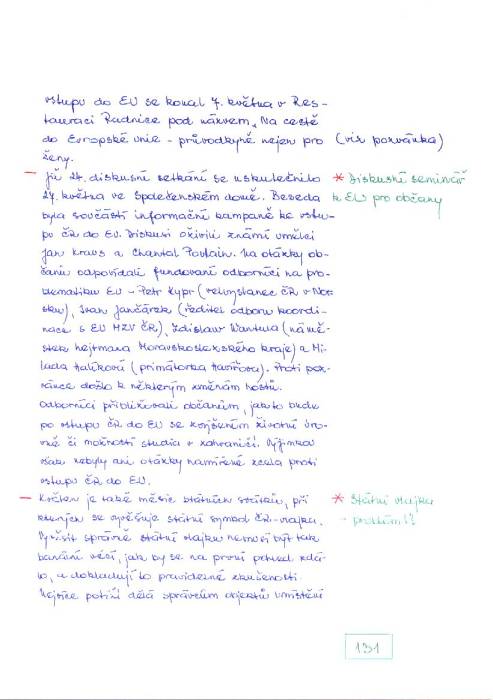 vstupu do EU se konal 7. května v Res-
tauraci Radnice pod názvem „Na cestě
do Evropské unie - průvodkyně nejen pro (viz pozvánka)
ženy.
- Již 24. diskusní setkání se uskutečnilo * Diskusní seminář
27. května ve Společenském domě. Beseda k EU pro občany
byla součástí informační kampaně ke vstu-
pu ČR do EU. Diskusi oživili známí umělci
Jan Kraus a Chantal Poullain. Na otázky ob-
čanů odpovídali fundovaní odborníci na pro-
blematiku EU - Petr Kypr (velvyslanec ČR v Nor-
sku), Ivan Jančárek (ředitel odboru koordi-
nace s EU MZV ČR), Zdislaw Wantula (námě-
stek hejtmana Moravskoslezského kraje) a Mi-
lada Halíková (primátorka Havířova). Proti poz-
vánce došlo k některým změnám hostů.
Odborníci přibližovali občanům, jak to bude
po vstupu ČR do EU se zvýšením životní úro-
vně či možností studia v zahraničí. Výjimkou
však nebyly ani otázky namířené zcela proti
vstupu ČR do EU.
- Květen je také měsíc státních svátků, při * Státní vlajka
kterých se vyvěšuje státní symbol ČR - vlajka. - problém!?
Vyvěsit správně státní vlajku nemusí být tak
banální věcí, jak by se na první pohled zdá-
lo, a dokladují to pravidelné zkušenosti.
Nejvíce potíží dělá správcům objektů umístění
131